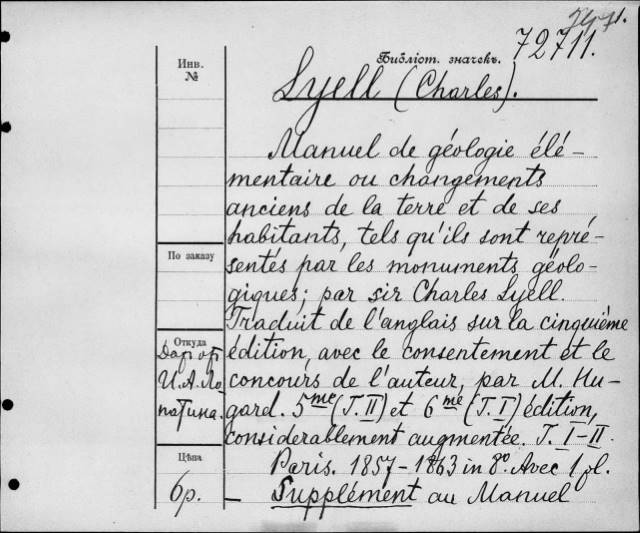 72711.
Библіот. значекъ.
Инв.
№
Lyell (Charles).
Manuel de géologie élé-
mentaire ou changements
anciens de la terre et de ses
habitants, tels qu'ils sont repré-
По заказу
sentés par les monuments géolo-
giques; par sir Charles Lyell.
Traduit de l'anglais sur la cinquième
Откуда
Даръ отъ
И. А. Ло-
патина.
édition, avec le consentement et le
concours de l'auteur, par M. Hu-
gard. 5me (T. II) et 6me (T. I) édition,
considerablement augmentée. T. I-II.
Цѣна
6 р.
Paris. 1857-1863 in 8º. Avec 1 pl.
— Supplément au Manuel